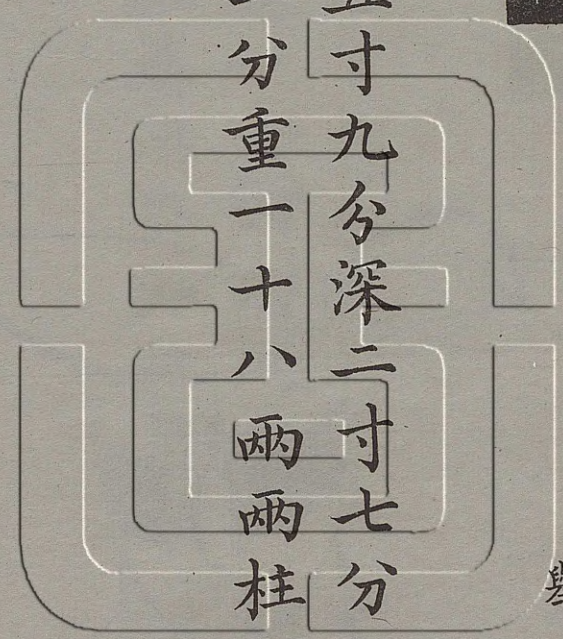 寸九分深二寸七分
分重一十八兩兩柱